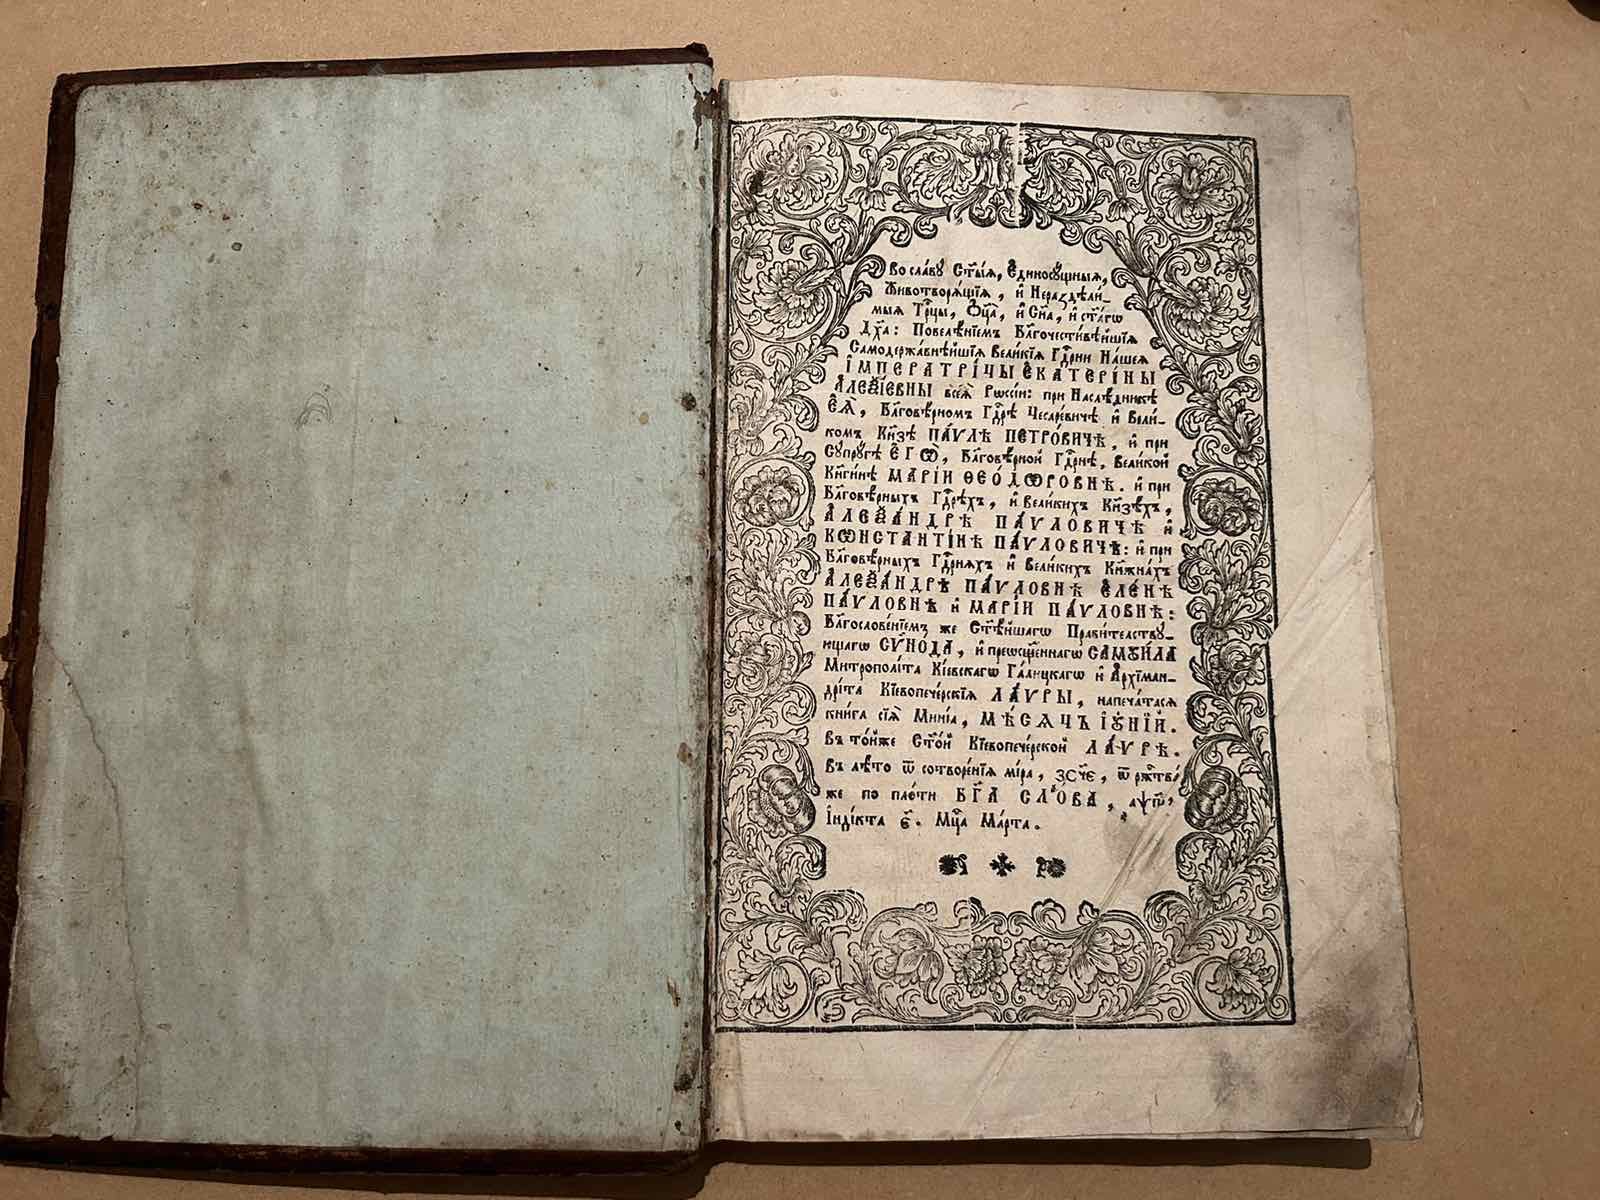 Во сла́вꙋ Ст҃ы́ѧ, Є҆диносꙋ́щныѧ,
Животворѧ́щїѧ, и҆ Нераздѣли́-
мыѧ Трⷪ҇цы, Ѻ҆ц҃а̀, и҆ Сн҃а, и҆ ст҃а́гѡ
Дх҃а: Повелѣ́нїемъ Блг҃очести́вѣйшїѧ
Самодержа́внѣйшїѧ Вели́кїѧ Гдⷭ҇рни На́шеѧ
І҆МПЕРАТРІ́ЦЫ Є҆КАТЕРІ́НЫ
А҆ЛЕѮІ́ЕВНЫ всеѧ̀ Рѡссі́и: при Наслѣ́дникѣ
Є҆Ѧ̀, Блг҃овѣ́рномъ Гдⷭ҇рѣ Чесаре́вичѣ и҆ Вели́-
комъ Кн҃зѣ ПА́ѴЛѢ ПЕТРО́ВИЧѢ, и҆ при
Сꙋпрꙋ́гѣ Є҆ГѠ̀, Блг҃овѣ́рной Гдⷭ҇рнѣ, Вели́кой
Кн҃ги́нѣ МАРІ́И ѲЕО́ДѠРОВНѢ. и҆ при
Блг҃овѣ́рныхъ Гдⷭ҇рѣхъ, и҆ Вели́кихъ Кн҃зѣ́хъ,
А҆ЛЕѮА́НДРѢ ПА́ѴЛОВИЧѢ и҆
КѠНСТАНТІ́НѢ ПА́ѴЛОВИЧѢ: и҆ при
Блг҃овѣ́рныхъ Гдⷭ҇рнѧхъ и҆ Вели́кихъ Кнѧжна́хъ
А҆ЛЕѮА́НДРѢ ПА́ѴЛОВНѢ Є҆ЛЕ́НѢ
ПА́ѴЛОВНѢ и҆ МАРІ́И ПА́ѴЛОВНѢ:
Блг҃ослове́нїемъ же Ст҃ѣ́йшагѡ Прави́телствꙋ-
ющагѡ СѴНО́ДА, и҆ преѡсщ҃е́ннагѡ САМꙊИ́ЛА
Митрополі́та Кі́евскагѡ Га́лицкагѡ и҆ А҆рхїман-
дрі́та Кїевопече́рскїѧ ЛА́ѴРЫ, напеча́тасѧ
кни́га сїѧ̀ Мині́а, МѢ́СѦЦЪ І҆Ꙋ́НІЙ.
Въ то́йже Ст҃о́й Кїевопече́рской ЛА́ѴРѢ.
Въ лѣ́то ѿ сотворе́нїѧ мі́ра, ҂зсч҃є, ѿ ржⷭ҇тва́
же по пло́ти БГ҃А СЛО́ВА, ҂аѱп҃з,
І҆нді́кта є҃. Мцⷭ҇а Ма́рта.